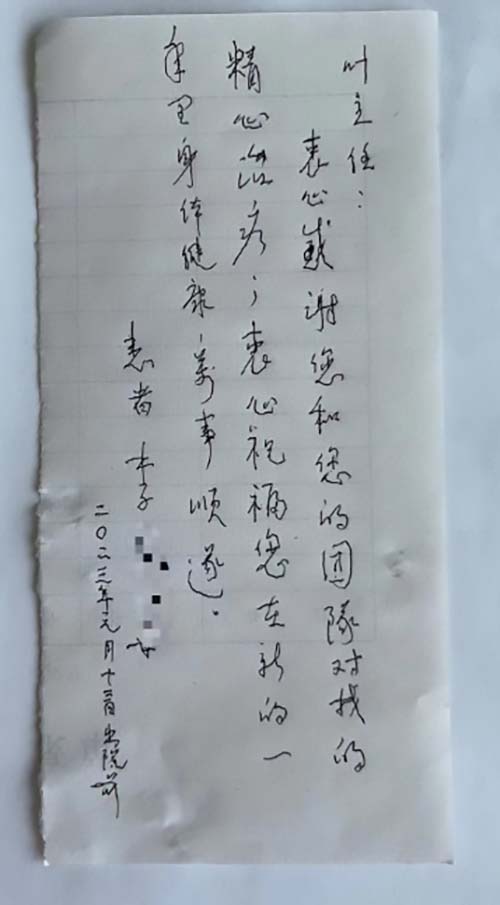 叶主任：
衷心感谢您和您的团隊对我的
精心治疗，衷心祝福您在新的一
年里身体健康，萬事顺遂。
患者 李
二〇二三年元月十日出院前